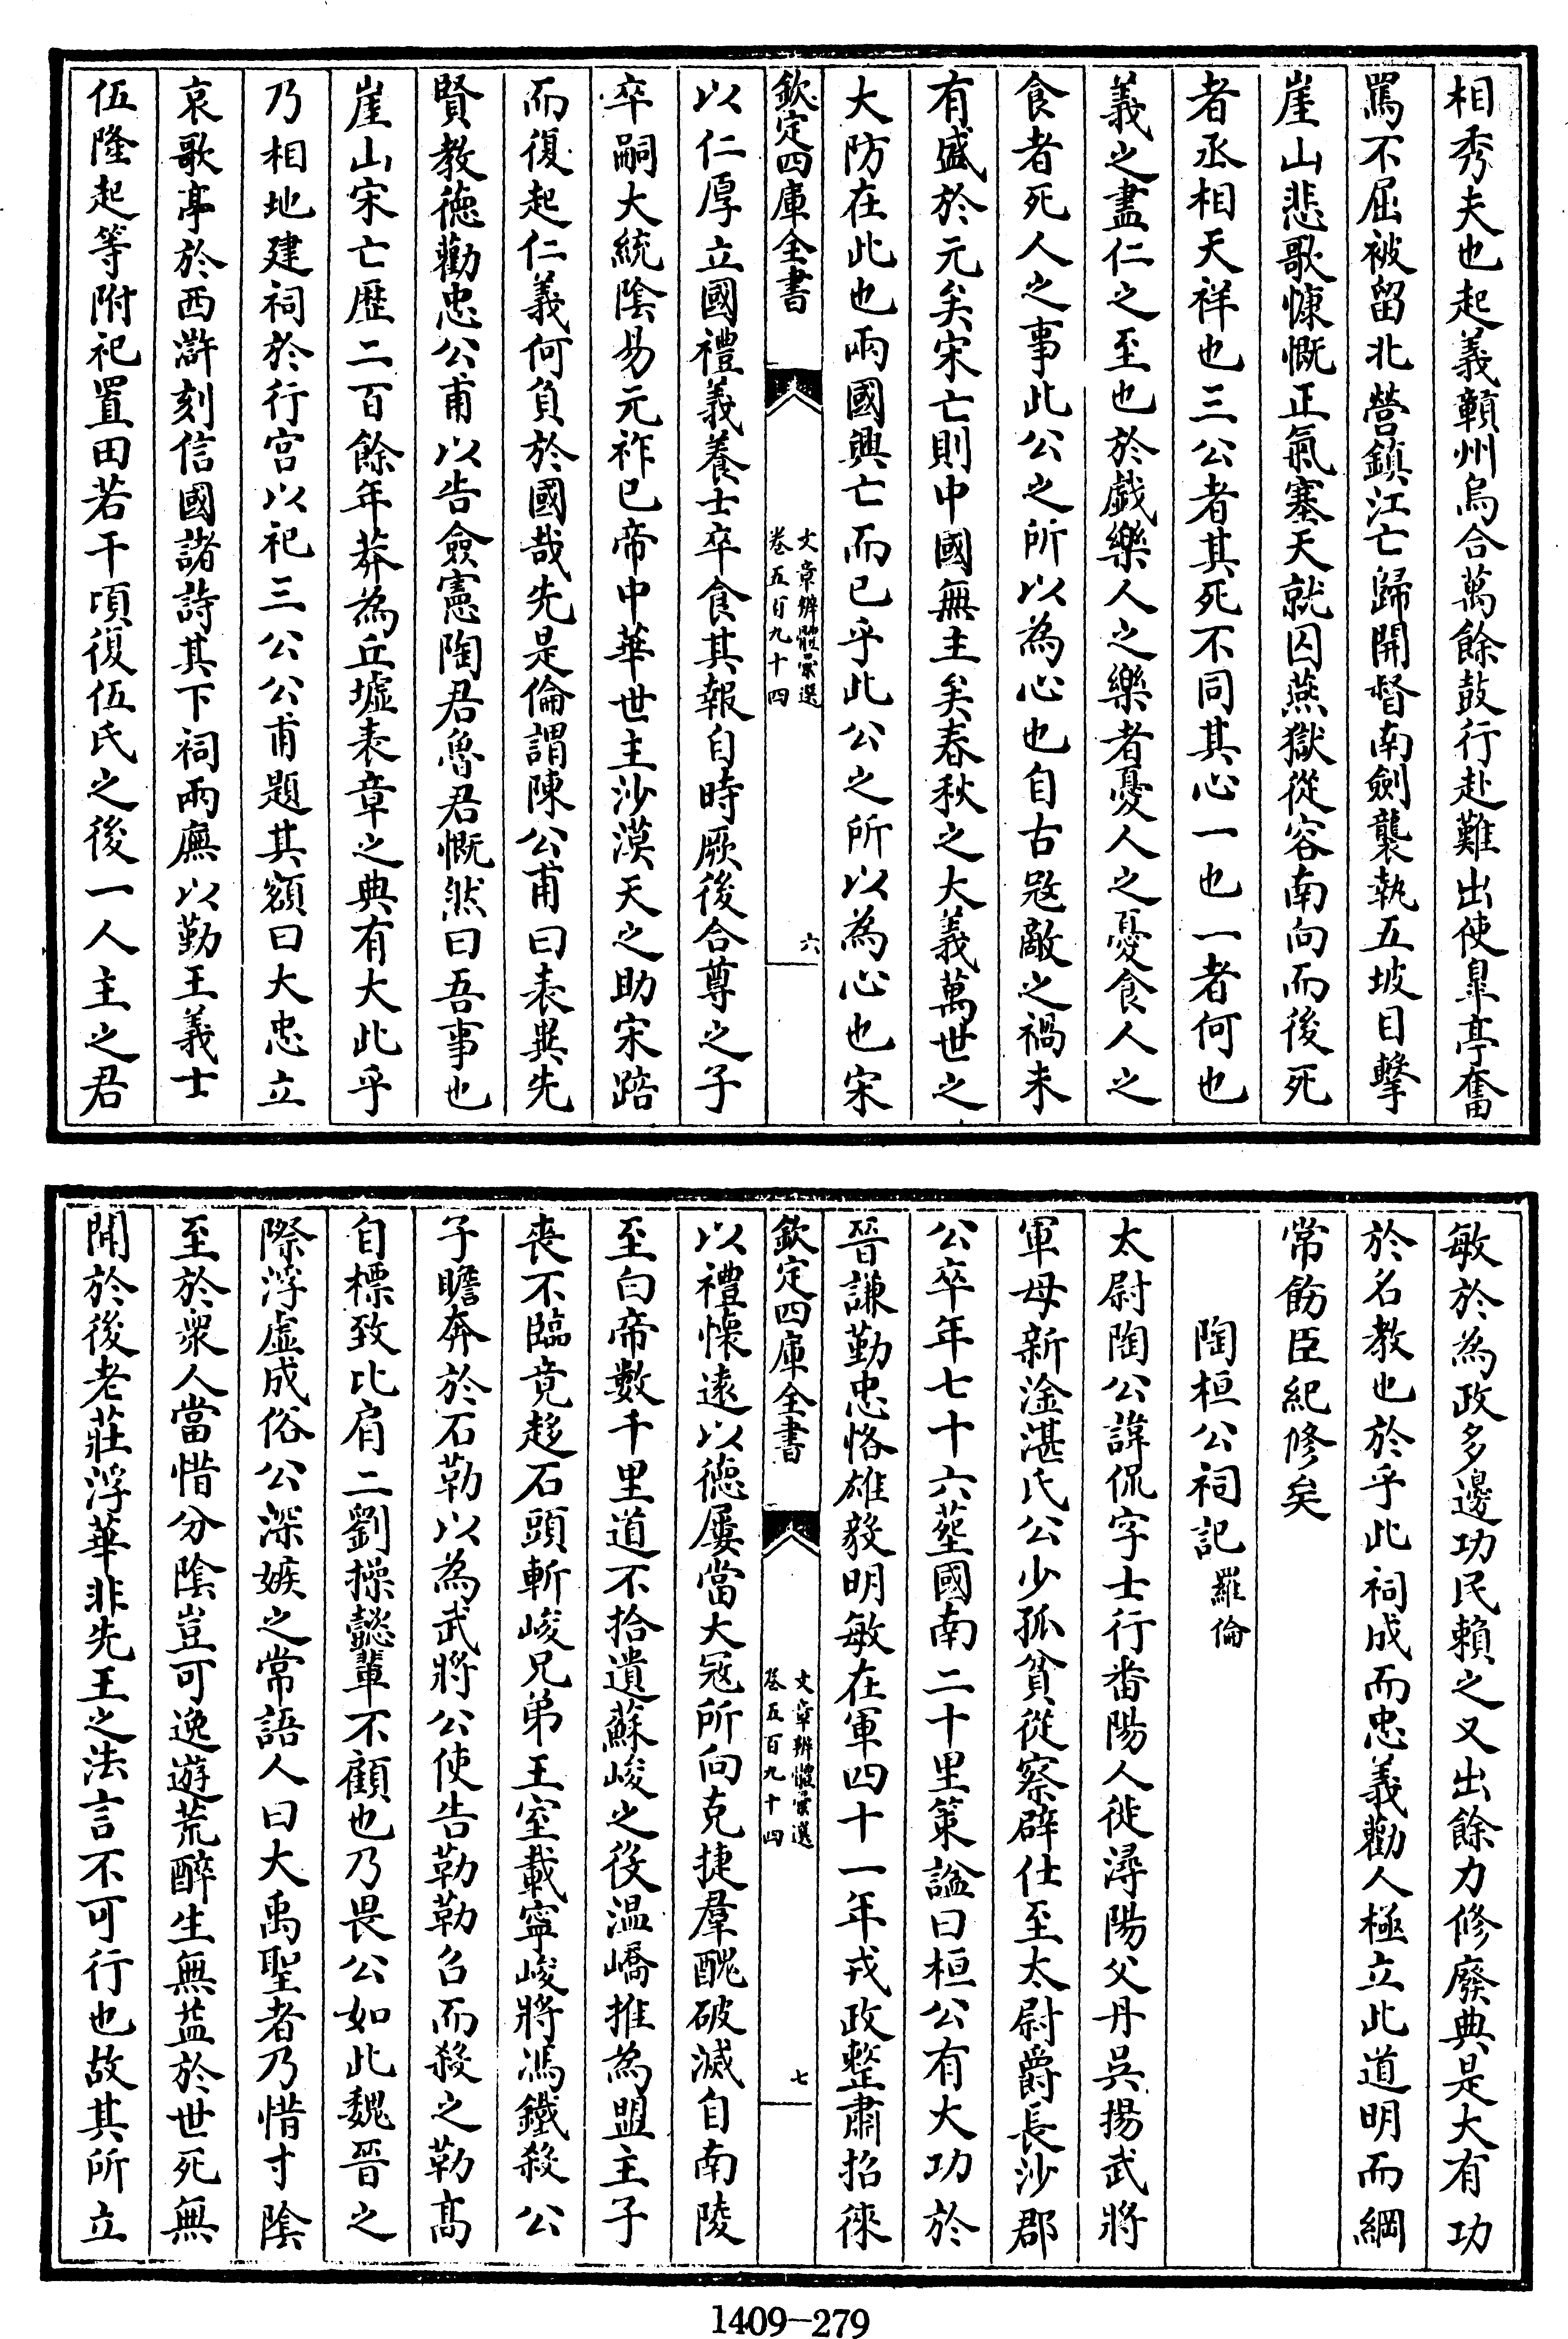 相秀夫也起義贑州烏合萬餘鼓行赴難出使臯亭奮
罵不屈被留北營鎮江亡歸開督南劍襲執五坡目擊
崖山悲歌慷慨正氣塞天就囚燕獄從容南向而後死
者丞相天祥也三公者其死不同其心一也一者何也
義之盡仁之至也於戲樂人之樂者憂人之憂食人之
食者死人之事此公之所以為心也自古宼敵之禍未
有盛於元矣宋亡則中國無主矣春秋之大義萬世之
大防在此也兩國興亡而已乎此公之所以為心也宋
欽定四庫全書
文章辨體彚選
卷五百九十四
六
以仁厚立國禮義養士卒食其報自時厥後合尊之子
卒嗣大統陰易元祚已帝中華世主沙漠天之助宋踣
而復起仁義何負於國哉先是倫謂陳公甫曰表與先
賢教徳勸忠公甫以告僉憲陶君魯君慨然曰吾事也
崖山宋亡歴二百餘年莽為丘墟表章之典有大此乎
乃相地建祠於行宫以祀三公公甫題其額曰大忠立
哀歌亭於西滸刻信國諸詩其下祠兩廡以勤王義士
伍隆起等附祀置田若干頃復伍氏之後一人主之君
敏於為政多邊功民賴之又出餘力修廢典是大有功
於名教也於乎此祠成而忠義勸人極立此道明而綱
常飭臣紀修矣
陶桓公祠記羅倫
太尉陶公諱侃字士行番陽人徙潯陽父丹吳揚武將
軍母新淦湛氏公少孤貧從察辟仕至太尉爵長沙郡
公卒年七十六塟國南二十里策諡曰桓公有大功於
晉謙勤忠恪雄毅明敏在軍四十一年戎政整肅招徠
欽定四庫全書
文章辨體彚選
卷五百九十四
七
以禮懷逺以徳屢當大冦所向克捷羣醜破滅自南陵
至白帝數千里道不拾遺蘇峻之役温嶠推為盟主子
喪不臨竟趍石頭斬峻兄弟王室載寧峻將馮鐵殺公
子瞻奔於石勒以為武將公使告勒勒召而殺之勒髙
自標致比肩二劉操懿輩不顧也乃畏公如此魏晉之
際浮虚成俗公深嫉之常語人曰大禹聖者乃惜寸陰
至於衆人當惜分陰豈可逸遊荒醉生無葢於世死無
聞於後老莊浮華非先王之法言不可行也故其所立
1409-279